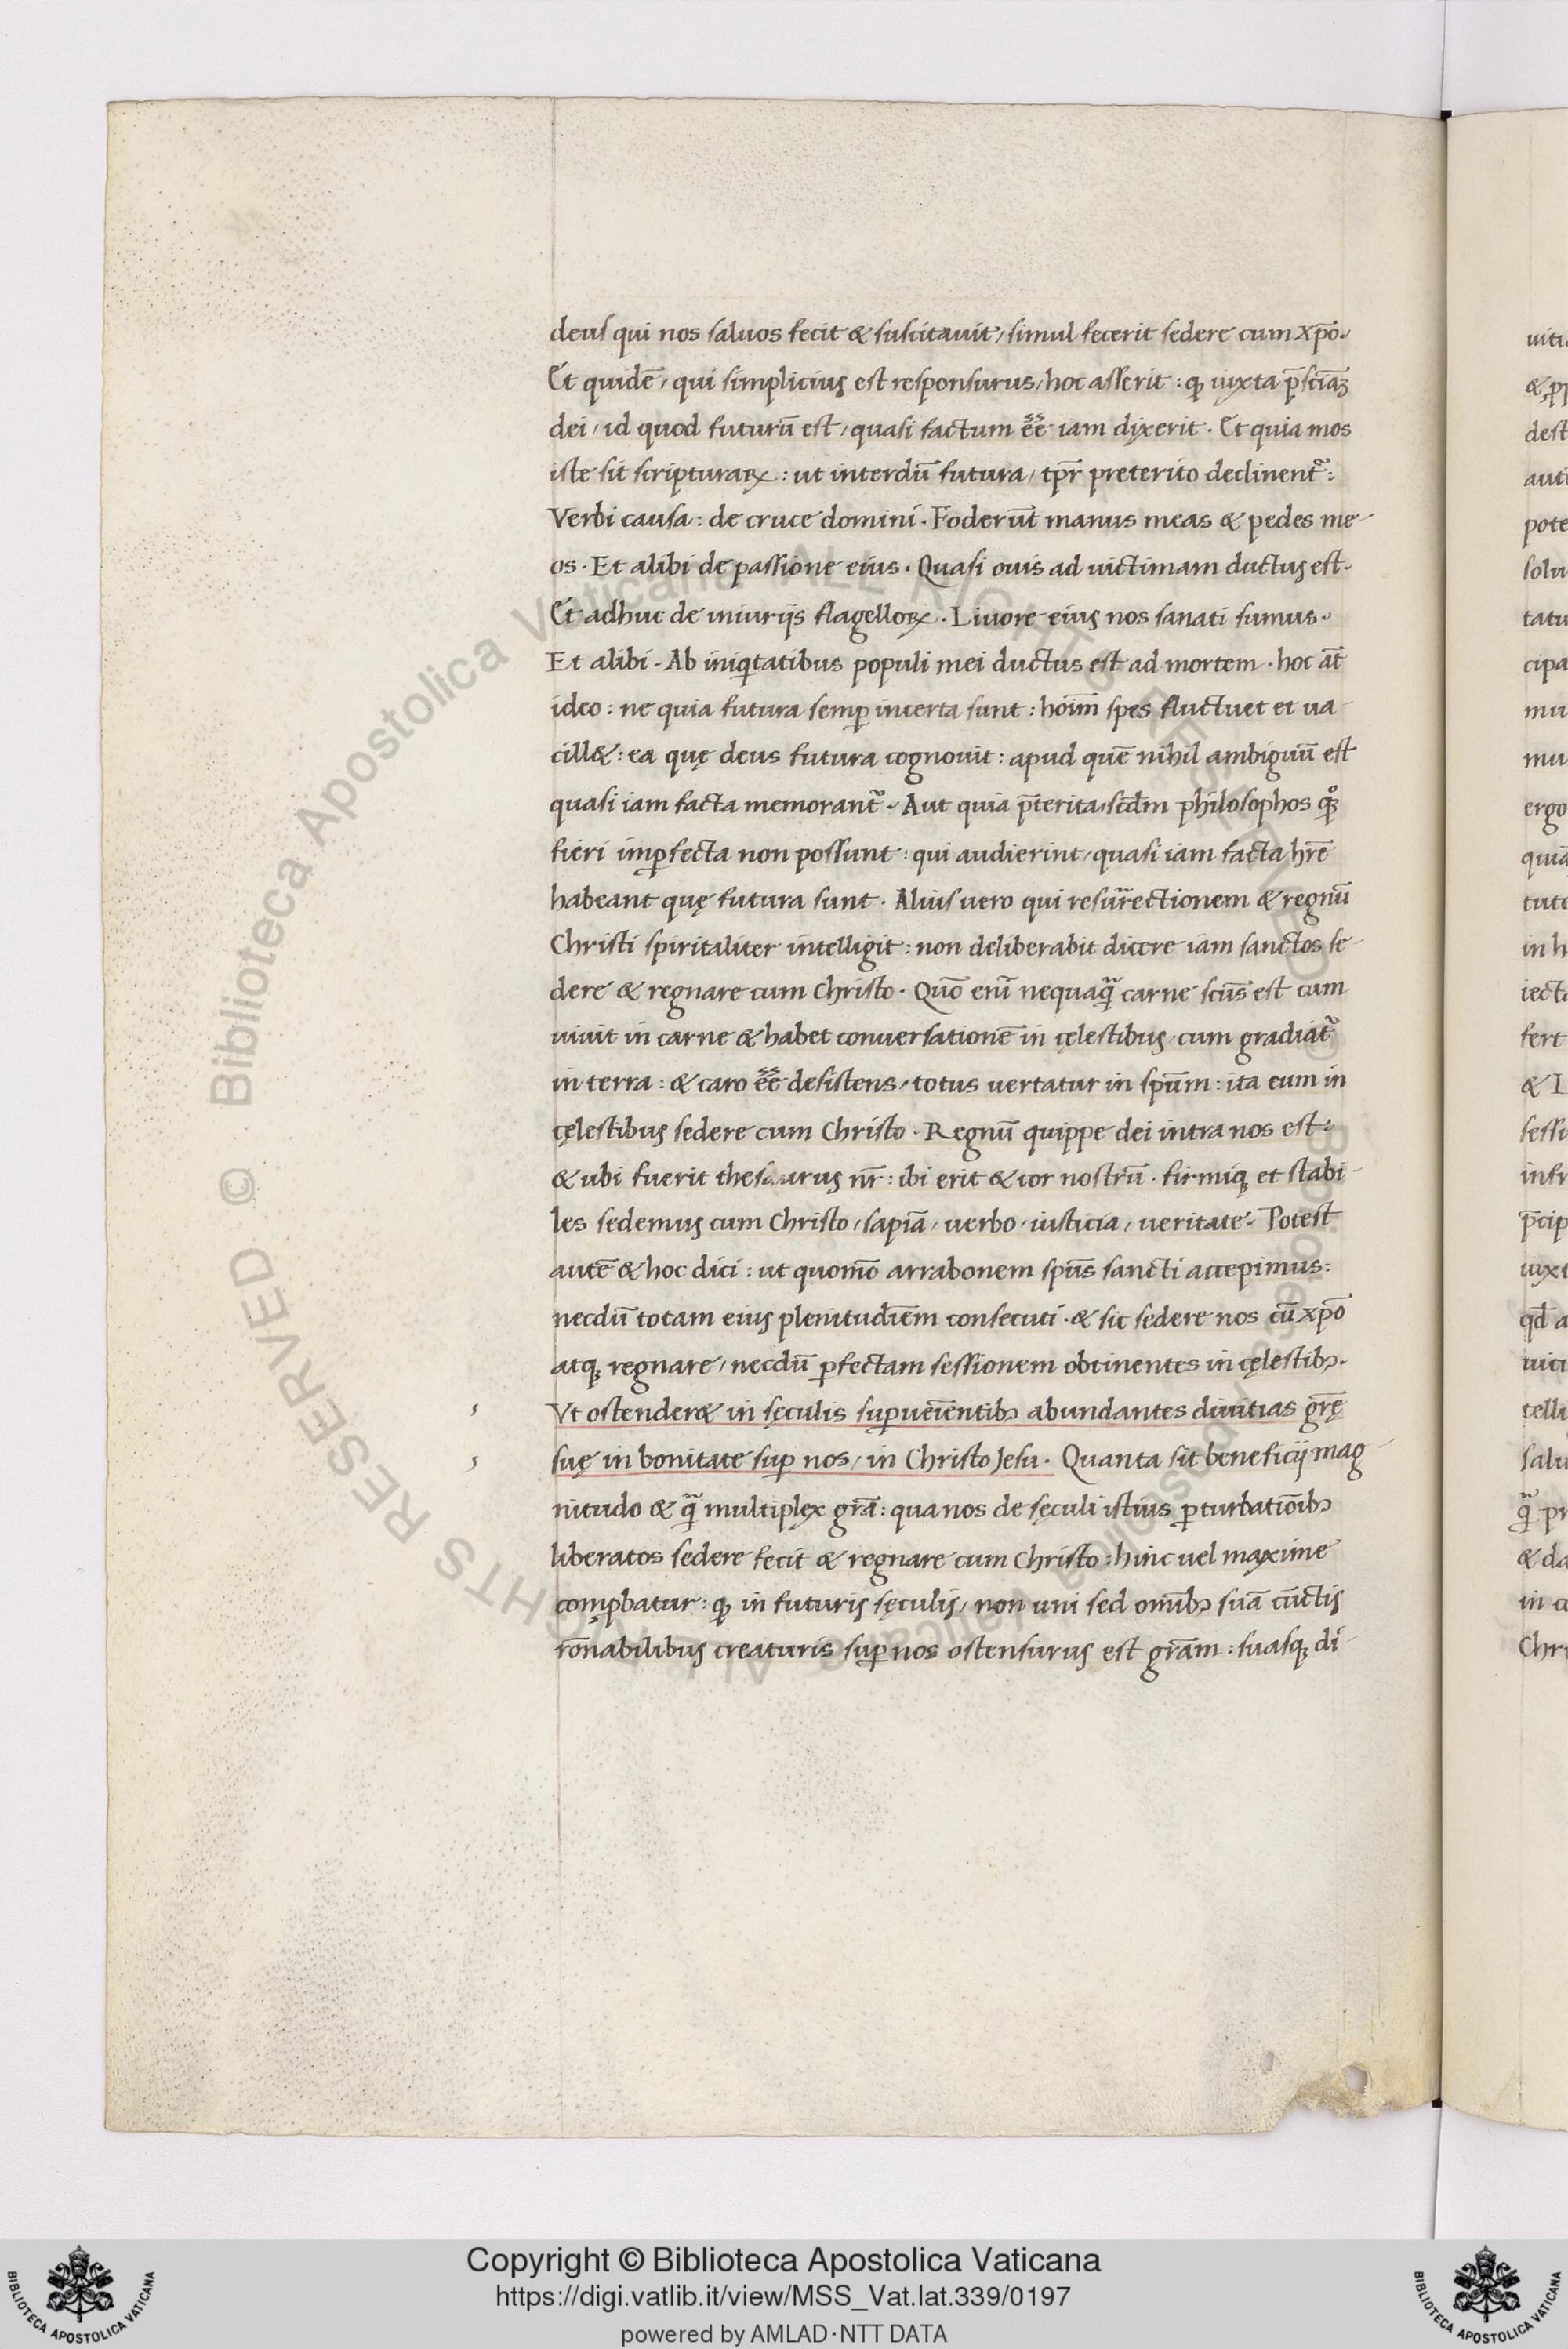 deus qui nos saluos fecit & suscitauit, simul fecerit sedere cum xp̄o.
Et quidē, qui simplicius est responsurus, hoc asserit: ꝙ iuxta p̄sciāꝫ
dei, id quod futurū est, quasi factum ee̅ iam dixerit. Et quia mos
iste sit scripturaꝝ: ut interdū futura, tp̄r preterito declinentᷣ:
Verbi causa: de cruce domini. Foderūt manus meas & pedes me-
os. Et alibi de passione eius. Quasi ouis ad uictimam ductus est.
Et adhuc de iniurijs flagelloꝝ. Liuore eius nos sanati sumus.
Et alibi. Ab iniqtatibus populi mei ductus est ad mortem. hoc at̄
ideo: ne quia futura semꝑ incerta sunt: hoim̄ spes fluctuet et ua-
cill&: ea quę deus futura cognouit: apud quē nihil ambiguū est
quasi iam facta memorantᷣ. Aut quia p̄terita, scd̄m philosophos qͦꝫ
fieri imꝑfecta non possunt: qui audierint, quasi iam facta hr̄e
habeant quę futura sunt. Alius uero qui resurrectionem & regnū
Christi spiritaliter intelligit: non deliberabit dicere iam sanctos se-
dere & regnare cum Christo. Quō eni̅ nequaqᷓ carne scūs est cum
uiuit in carne & habet conuersationē in cęlestibus, cum gradiatᷣ
in terra: & caro ee̅ desistens, totus uertatur in spūm: ita eum in
cęlestibus sedere cum Christo. Regnū quippe dei intra nos est.
& ubi fuerit thesaurus nr̄: ibi erit & cor nostrū. firmiqꝫ et stabi-
les sedemus cum Christo, sapiā, uerbo, iusticia, ueritate. Potest
autē & hoc dici: ut quomō arrabonem spūs sancti accepimus:
necdū totam eius plenitudiēm consecuti. & sic sedere nos cū xp̄o
atqꝫ regnare, necdū ꝑfectam sessionem obtinentes in cęlestibꝰ.
Vt ostender& in sęculis suꝑueīentibꝰ abundantes diuitias gr̄ę
suę in bonitate suꝑ nos, in Christo Jesu. Quanta sit beneficij mag-
nitudo & qᷓ multiplex grā: qua nos de sęculi istius ꝑturbatiōibꝰ
liberatos sedere fecit & regnare cum Christo: hinc uel maxime
comꝓbatur: ꝙ in futuris sęculis, non uni sed omībꝰ suā cūctis
rōnabilibus creaturis suꝑ nos ostensurus est grām: suasqꝫ di-
Copyright © Biblioteca Apostolica Vaticana
https://digi.vatlib.it/view/MSS_Vat.lat.339/0197
powered by AMLAD·NTT DATA